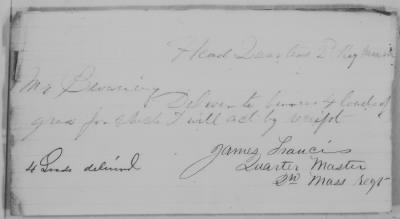 Head Quarters 2d Reg Mass
Mr Bevening
Deliver to bearer 4 loads of
gras for which I will act by recipt
James Francis
4 Loads delivered Quarter Master
2nd Mass Regt